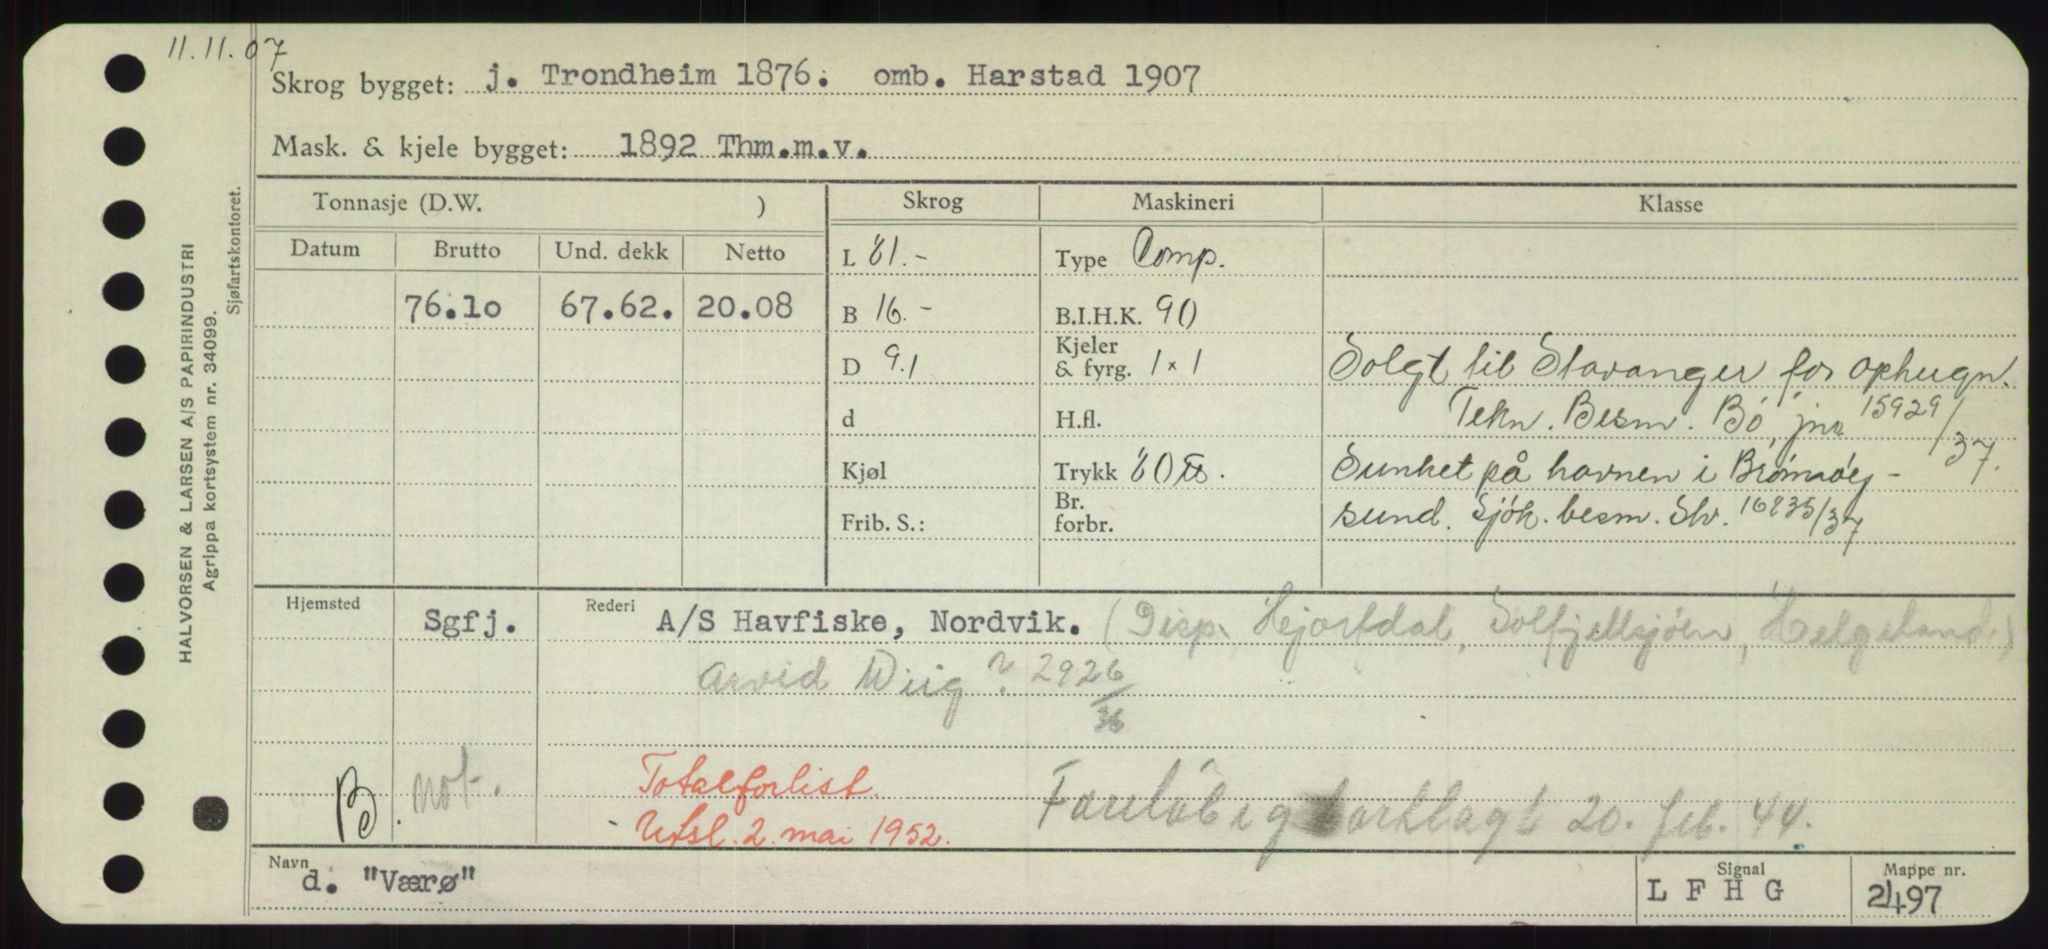 11.11.07
Skrog bygget: j. Trondheim 1876. omb. Harstad 1907
Mask. & kjele bygget: 1892 Thm.m.v.
Tonnasje (D.W. )
Skrog
Maskineri
Klasse
Datum
Brutto
Und. dekk
Netto
L 81.-
Type Comp.
76.10
67.62.
20.08
B 16.-
B.I.H.K. 90
D 9.1
Kjeler
& fyrg. 1 x 1
Solgt til Stavanger for ophugn.
d
H.fl.
Tekn. Besm. Bö, jnr 15929/37.
Kjøl
Trykk 80
Sunket på havnen i Brönnöy-
Frib. S.:
Br.
forbr.
sund. Sjök. besm. Slv. 16835/37
Hjemsted
Sgfj.
Rederi
A/S Havfiske, Nordvik. (Disp. Hjartdal, Solfjellsjöen, Helgeland.)
Arvid Wiig 2926/36
B.
not.
Totalforlist.
Utsl. 2. mai 1952.
Foreløbig bortlagt 20. feb. 44.
Navn
d. "Værø"
Signal
L F H G
Mappe nr.
2497
HALVORSEN & LARSEN A/S PAPIRINDUSTRI
Agrippa kortsystem nr. 34099.
Sjøfartskontoret.